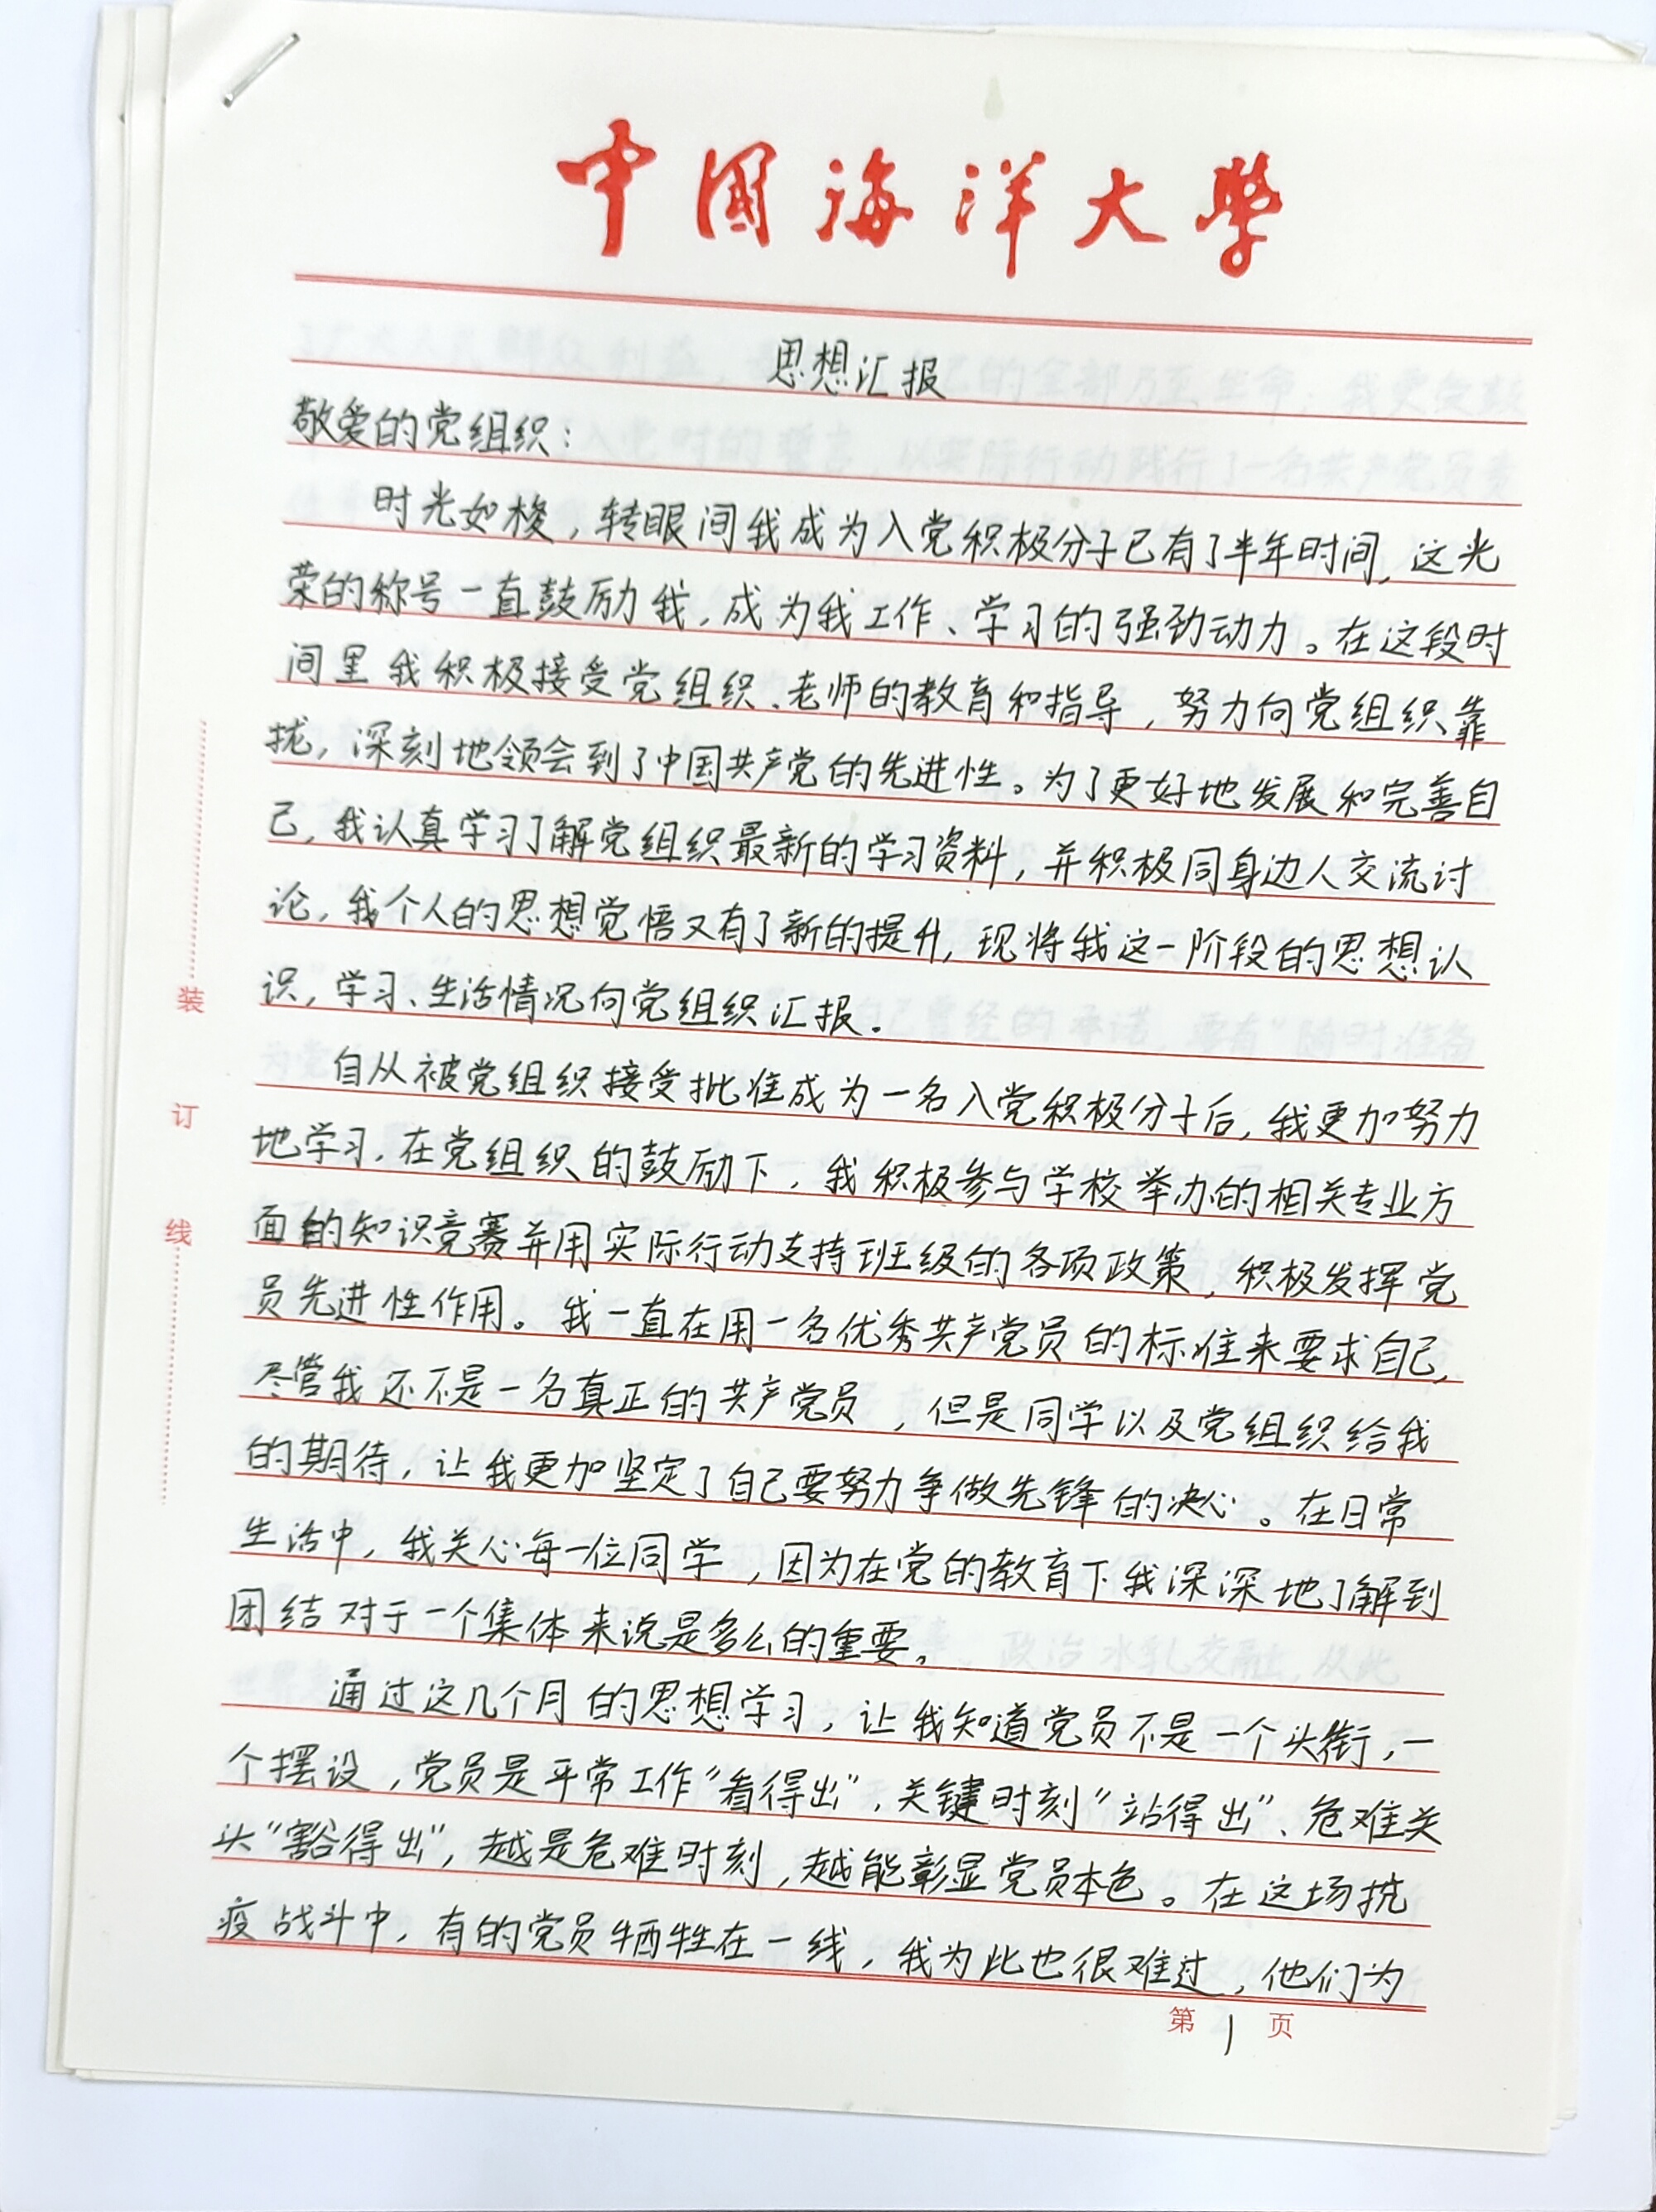 中国海洋大学
思想汇报
敬爱的党组织：
时光如梭，转眼间我成为入党积极分子已有了半年时间，这光
荣的称号一直鼓励我，成为我工作、学习的强劲动力。在这段时
间里我积极接受党组织、老师的教育和指导，努力向党组织靠
拢，深刻地领会到了中国共产党的先进性。为了更好地发展和完善自
己，我认真学习了解党组织最新的学习资料，并积极同身边人交流讨
论，我个人的思想觉悟又有了新的提升，现将我这一阶段的思想认
识，学习、生活情况向党组织汇报.
自从被党组织接受批准成为一名入党积极分子后，我更加努力
地学习.在党组织的鼓励下，我积极参与学校举办的相关专业方
面的知识竞赛并用实际行动支持班级的各项政策，积极发挥党
员先进性作用。我一直在用一名优秀共产党员的标准来要求自己，
尽管我还不是一名真正的共产党员，但是同学以及党组织给我
的期待，让我更加坚定了自己要努力争做先锋的决心。在日常
生活中，我关心每一位同学，因为在党的教育下我深深地了解到
团结对于一个集体来说是多么的重要。
通过这几个月的思想学习，让我知道党员不是一个头衔，一
个摆设，党员是平常工作“看得出”，关键时刻“站得出”、危难关
头“豁得出”，越是危难时刻，越能彰显党员本色。在这场抗
疫战斗中，有的党员牺牲在一线，我为此也很难过，他们为
第1页
装
订
线